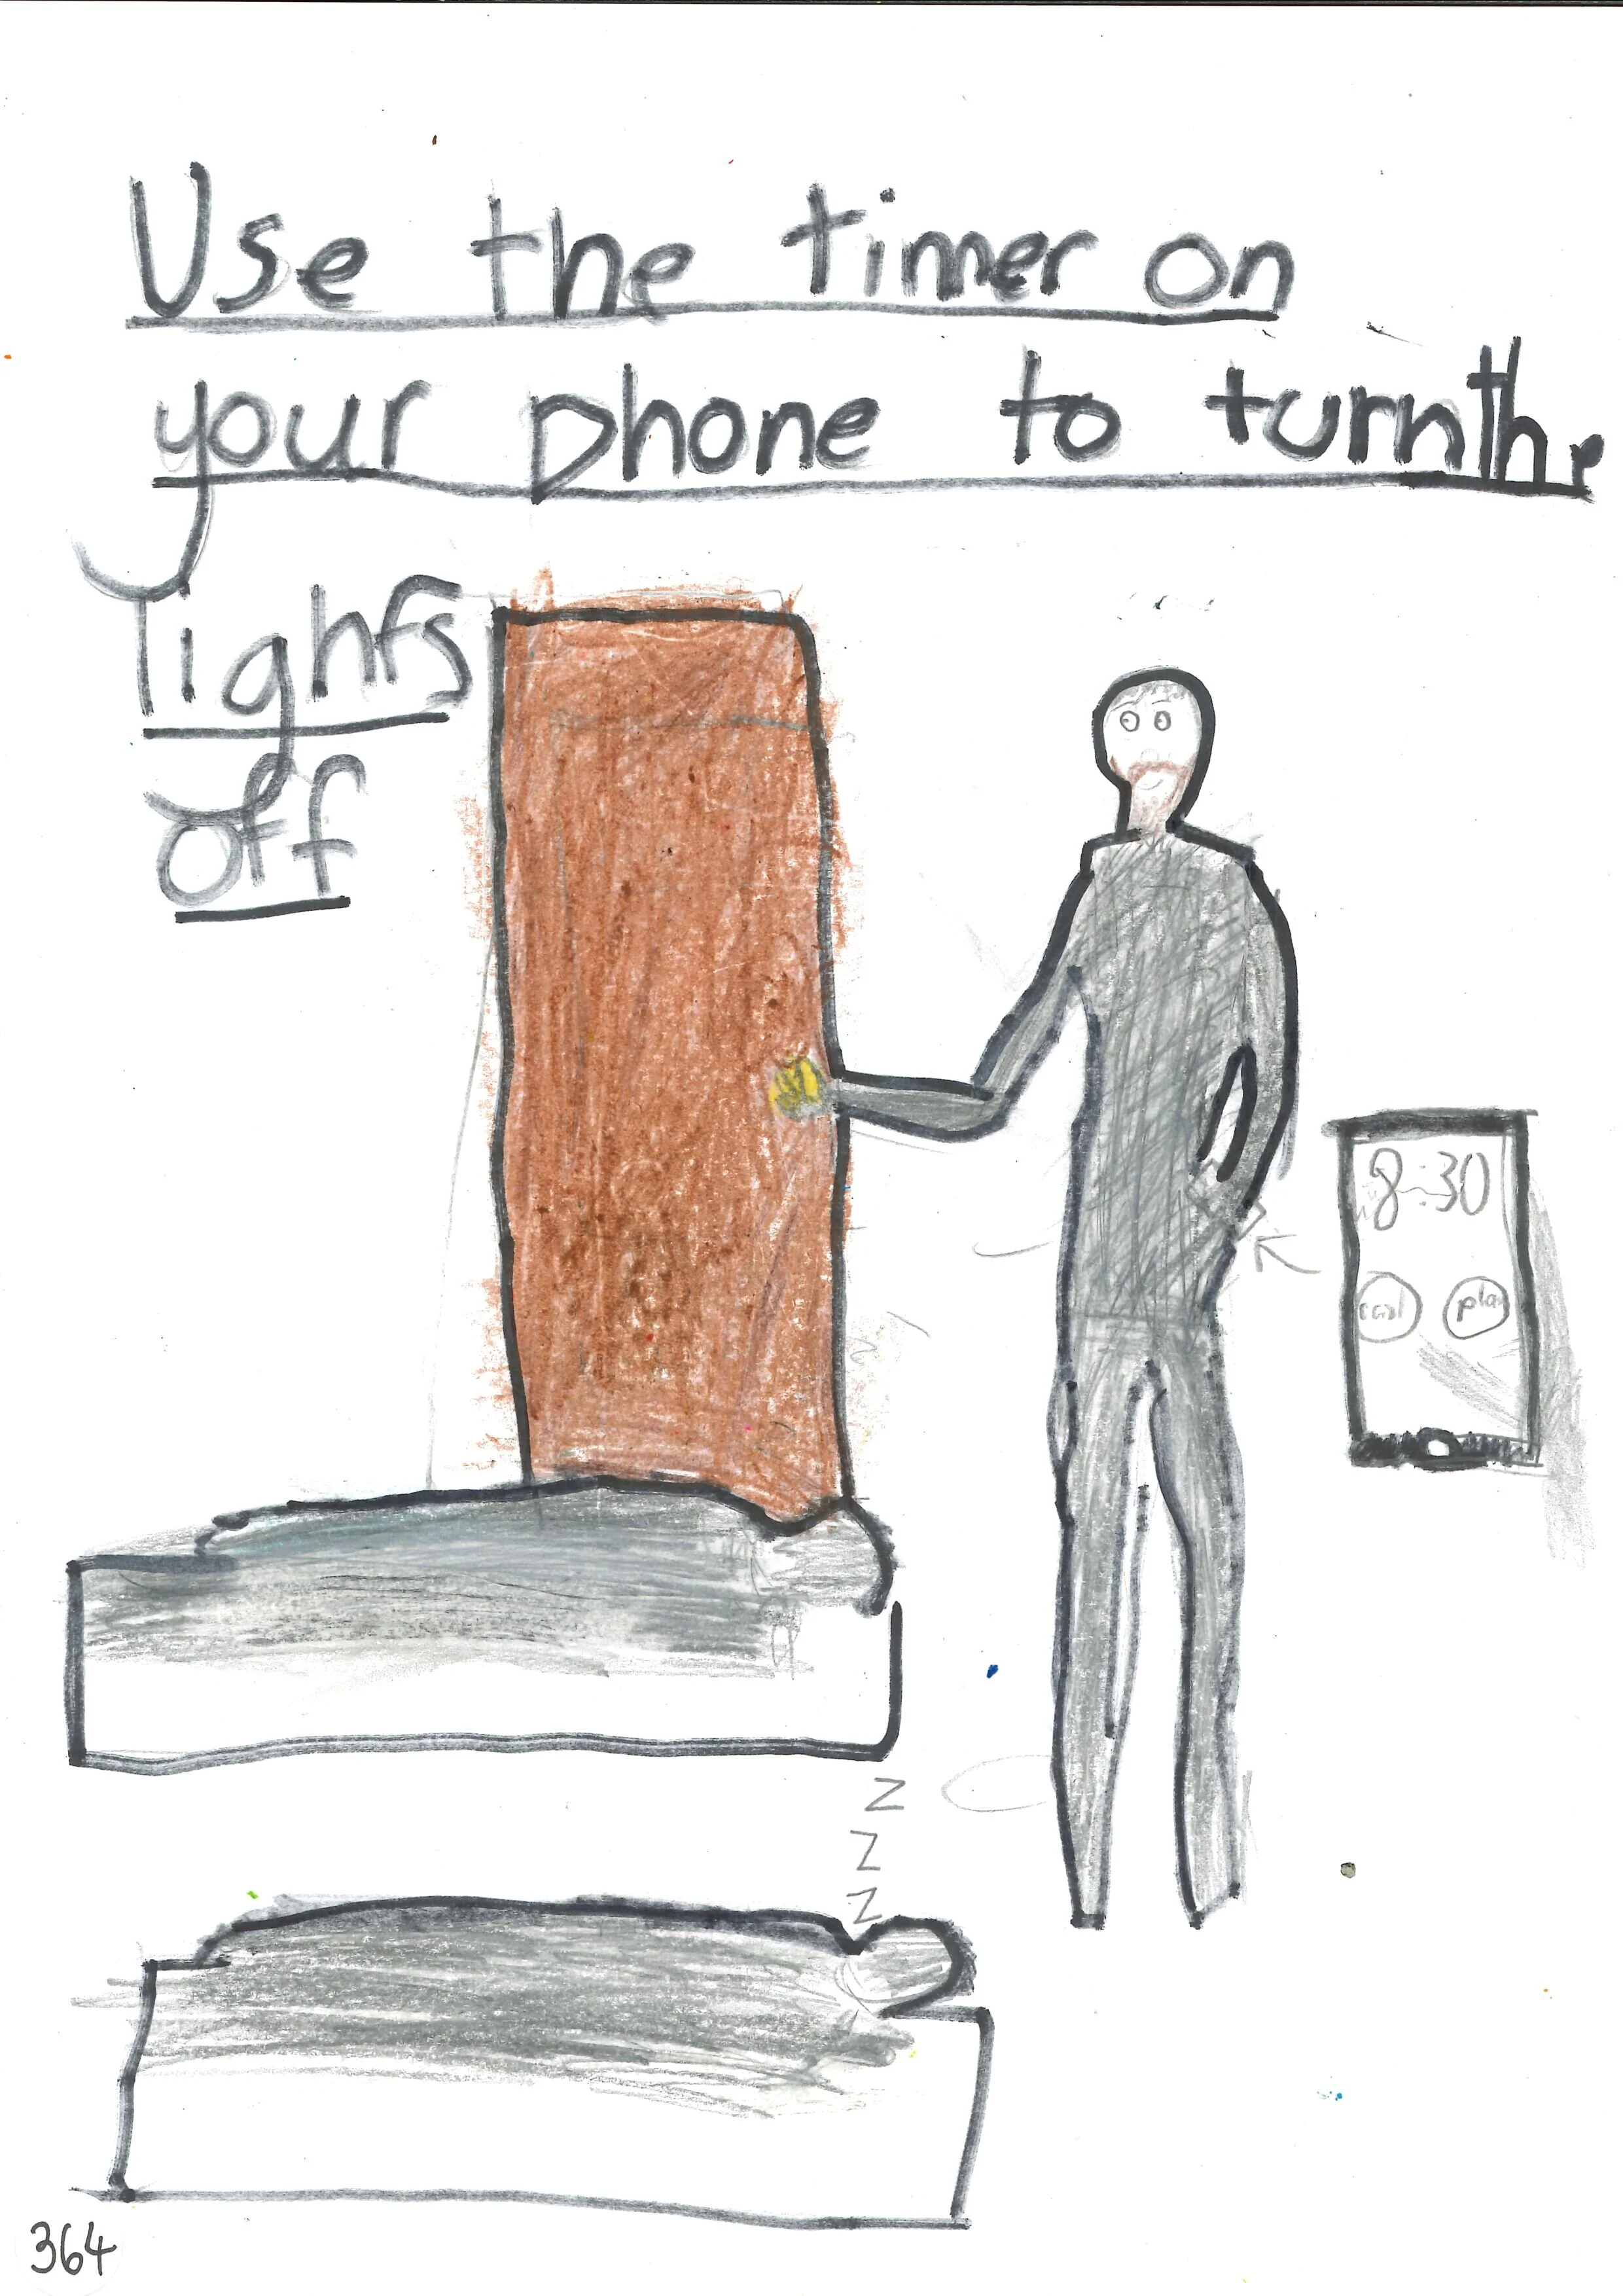 Use the timer on
your phone to turn the
lights
off
8:30
play
z
z
z
364